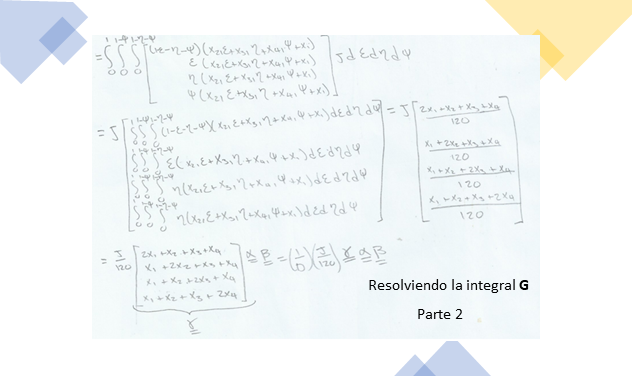 = ∫₀¹ ∫₀^{1-ψ} ∫₀^{1-η-ψ} [ (1-ε-η-ψ)(x₂₁ε+x₃₁η+x₄₁ψ+x₁)
ε(x₂₁ε+x₃₁η+x₄₁ψ+x₁)
η(x₂₁ε+x₃₁η+x₄₁ψ+x₁)
ψ(x₂₁ε+x₃₁η+x₄₁ψ+x₁) ] J dε dη dψ
= J [ ∫₀¹ ∫₀^{1-ψ} ∫₀^{1-η-ψ} (1-ε-η-ψ)(x₂₁ε+x₃₁η+x₄₁ψ+x₁) dε dη dψ
∫₀¹ ∫₀^{1-ψ} ∫₀^{1-η-ψ} ε(x₂₁ε+x₃₁η+x₄₁ψ+x₁) dε dη dψ
∫₀¹ ∫₀^{1-ψ} ∫₀^{1-η-ψ} η(x₂₁ε+x₃₁η+x₄₁ψ+x₁) dε dη dψ
∫₀¹ ∫₀^{1-ψ} ∫₀^{1-η-ψ} η(x₂₁ε+x₃₁η+x₄₁ψ+x₁) dε dη dψ ]
= J [ (2x₁+x₂+x₃+x₄)/120
(x₁+2x₂+x₃+x₄)/120
(x₁+x₂+2x₃+x₄)/120
(x₁+x₂+x₃+2x₄)/120 ]
= J/120 [ 2x₁+x₂+x₃+x₄
x₁+2x₂+x₃+x₄
x₁+x₂+2x₃+x₄
x₁+x₂+x₃+2x₄ ] α β = (1/D)(J/120) γ α β
γ
Resolviendo la integral G
Parte 2